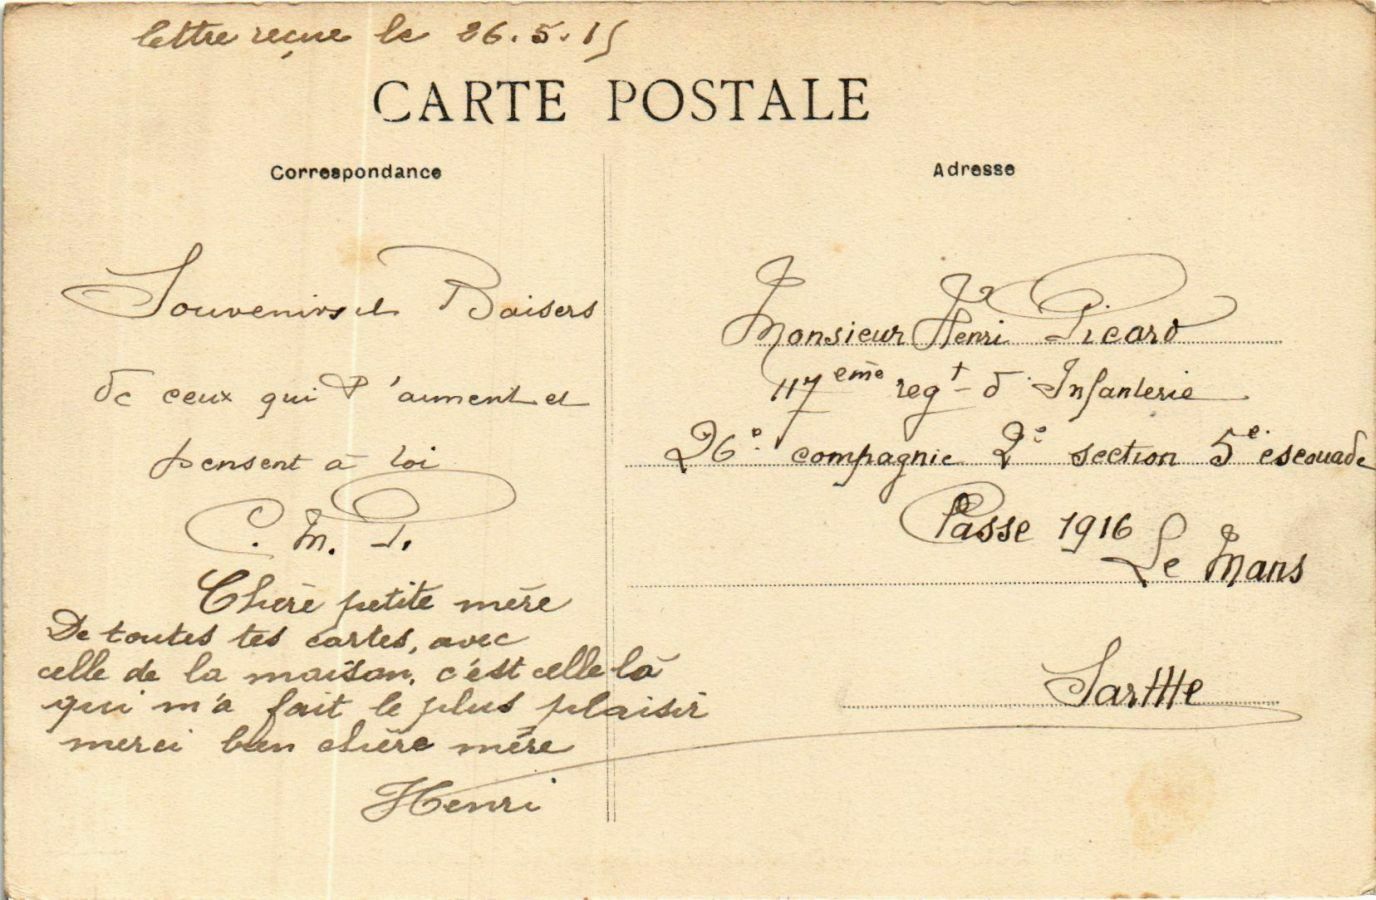 lettre reçue le 26.5.15
CARTE POSTALE
Correspondance
Adresse
Souvenirs et Baisers
de ceux qui t'aiment et
pensent à toi
C. M. P.
Chère petite mère
De toutes tes cartes, avec
celle de la maison, c'est celle là
qui m'a fait le plus plaisir
merci bien chère mère
Henri
Monsieur Henri Picard
117eme regt d'Infanterie
26e compagnie 2e section 5e escouade
Classe 1916
Le Mans
Sarthe